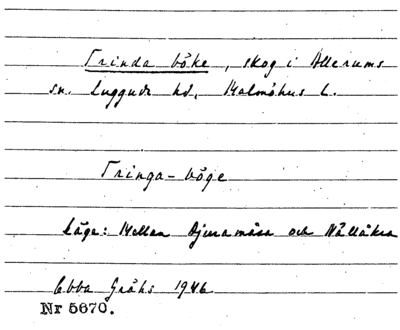 Trinda böke, skog i Allerums
sn. Luggude hd, Malmöhus l.
Tringa-böge
Läge: Mellan Djuramåsa och Nållåkra
Ebba Gråhs 1946
Nr 5670.